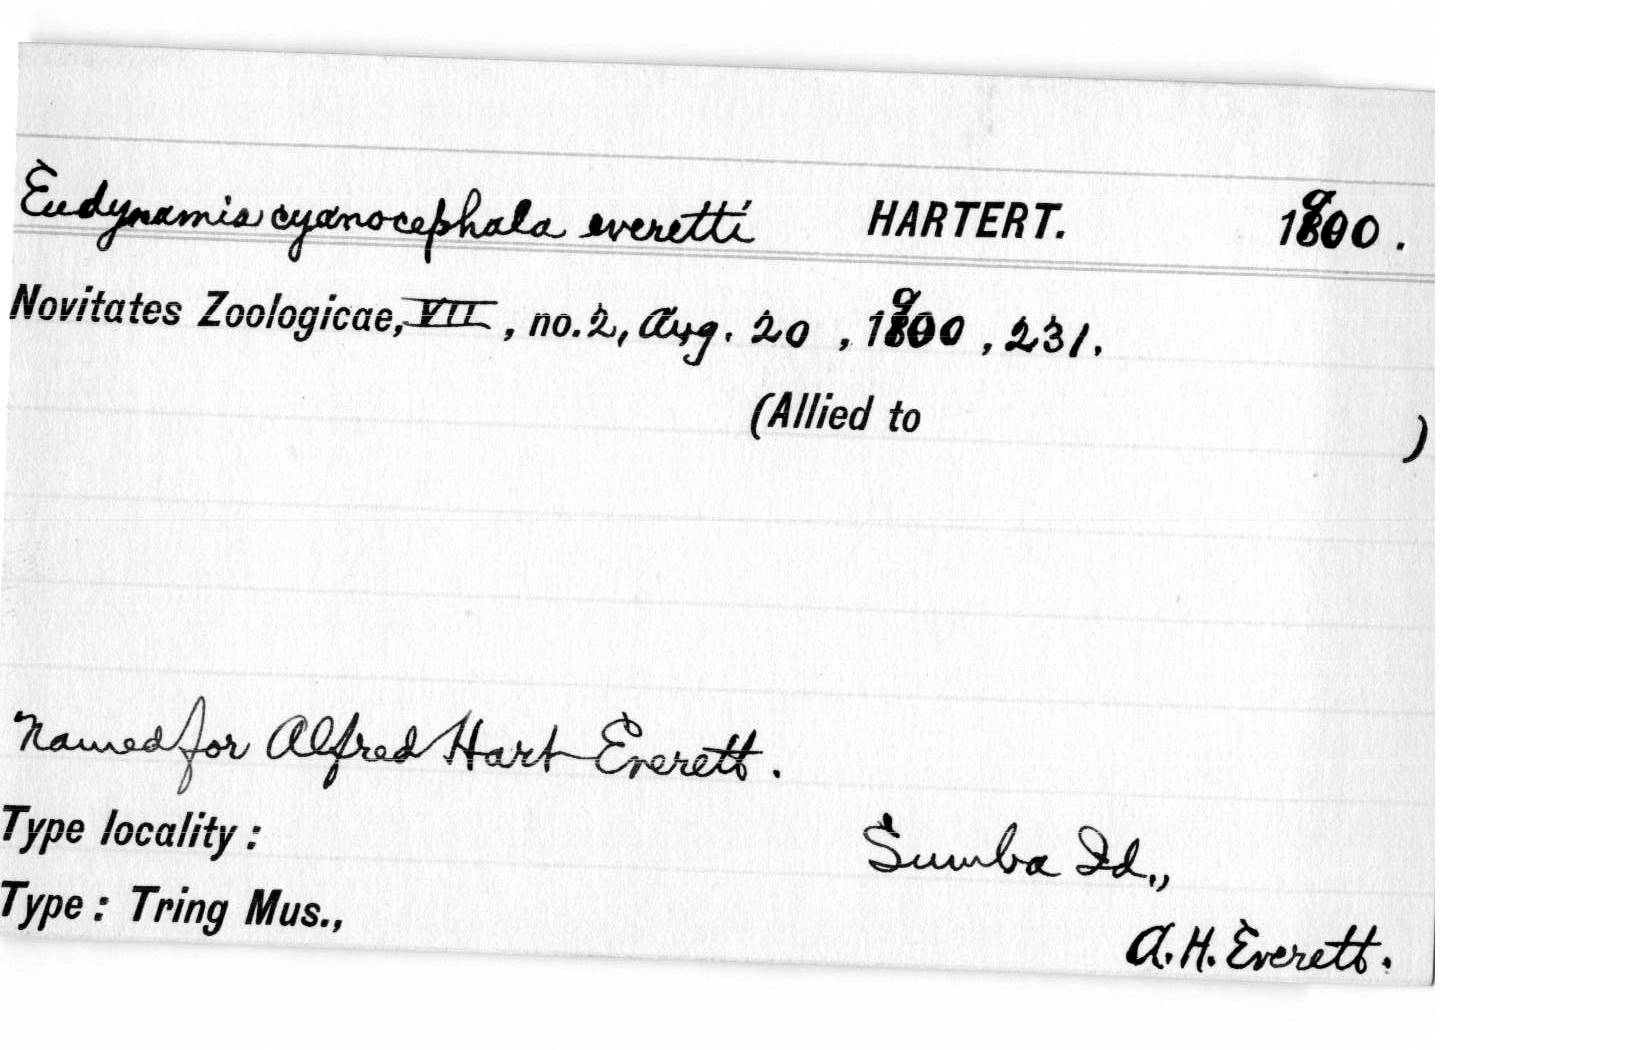 Eudynamis cyanocephala everetti HARTERT. 1900.
Novitates Zoologicae, VII, no. 2, Aug. 20, 1900, 231.
(Allied to )
Named for Alfred Hart Everett.
Type locality: Sumba Id.,
Type: Tring Mus., A. H. Everett.